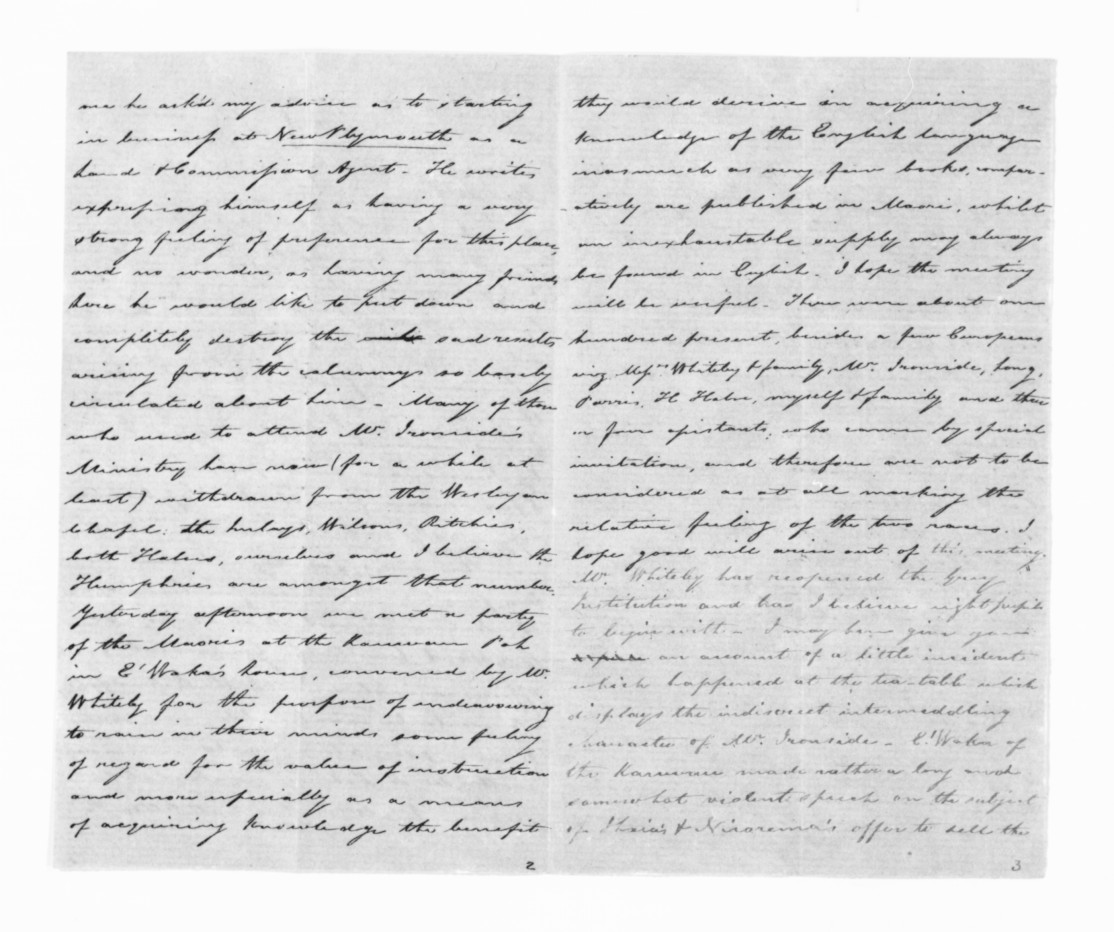 me he ask'd my advice as to starting
in business at New Plymouth as a
Land & Commission Agent. He writes
expressing himself as having a very
strong feeling of preference for this place,
and no wonder, as having many friends
here he would like to put down and
completely destroy the sad results
arising from the calumnys so basely
circulated about him - Many of those
who used to attend Mr. Ironside's
Ministry have now (for a while at
least) withdrawn from the Wesleyan
Chapel: the Wilsons, Ritchies,
both Halses, ourselves and I believe the
Humphries are amongst that number.
Yesterday afternoon we met a party
of the Maories at the Kawau Pah
in E'Waka's house, convened by Mr.
Whiteley for the purpose of endeavouring
to raise in their minds some feeling
of regard for the value of instruction
and more especially as a means
of acquiring knowledge the benefit
2
they would derive in acquiring a
knowledge of the English language
inasmuch as very few books, compar-
-atively are published in Maori, whilst
an inexhaustable supply may always
be found in English. I hope the meeting
will be useful. There were about one
hundred present, besides a few Europeans
viz Messrs Whiteley & family, Mr. Ironside, Long,
Parris, H Halse, myself & family and three
or four assistants, who came by special
invitation, and therefore are not to be
considered as at all marking the
relative feeling of the two races. I
hope good will arise out of this meeting.
Mr. Whiteley has reopened the Grey
Institution and has I believe eight pupils
to begin with - I may here give you
an account of a little incident
which happened at the tea-table which
displays the indiscreet intermeddling
character of Mr. Ironside - E'Waka of
the Kawau made rather a long and
somewhat violent speech on the subject
of Ihaia's & Nikorema's offer to sell the
3